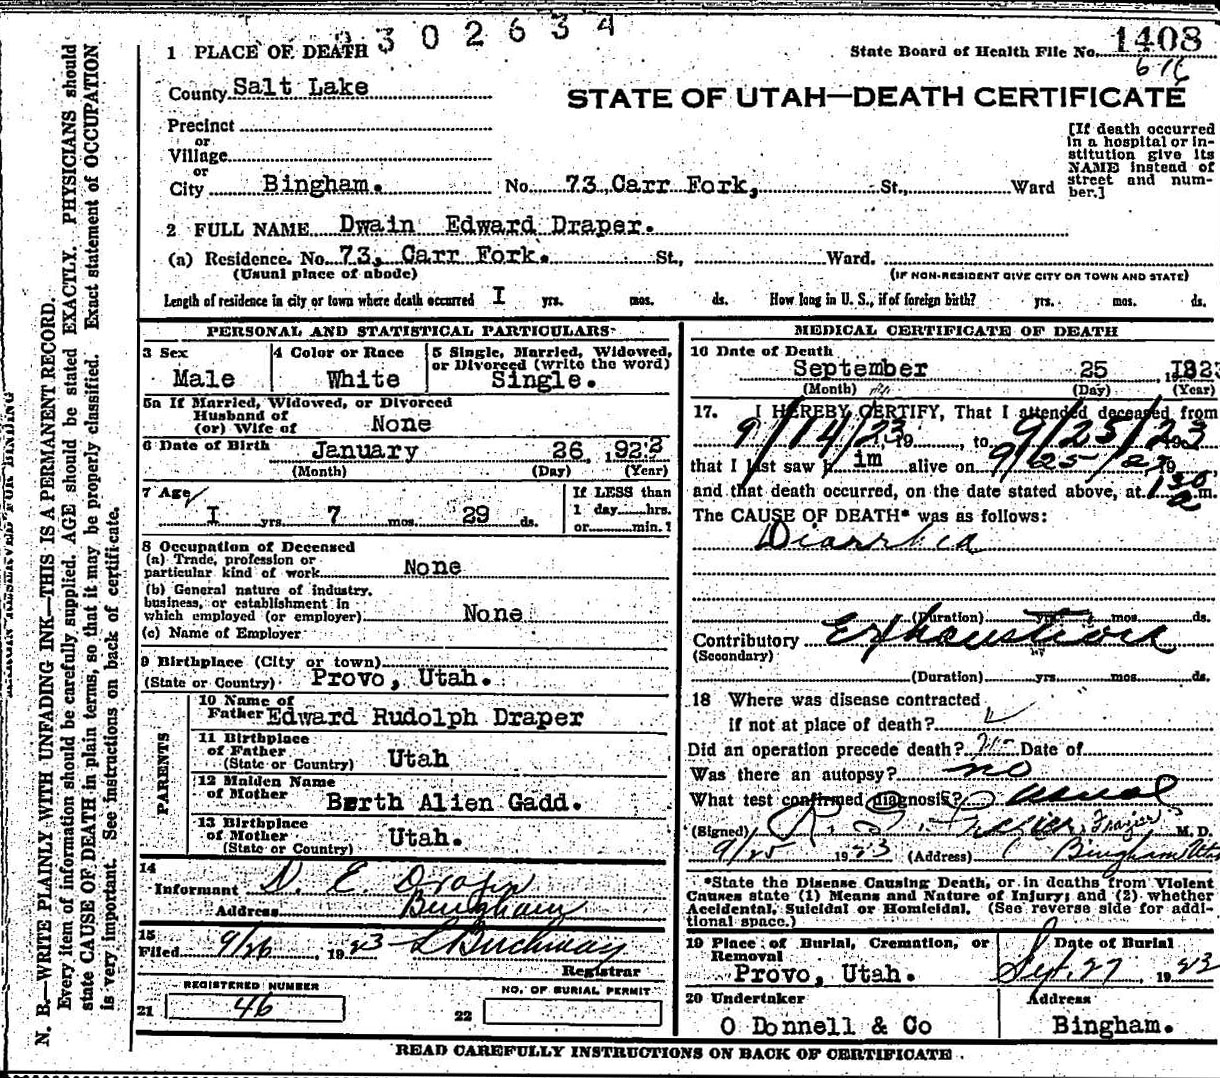 302634
1 PLACE OF DEATH
State Board of Health File No. 1408
6-16
County Salt Lake
STATE OF UTAH—DEATH CERTIFICATE
Precinct
or
Village
or
City Bingham. No. 73 Carr Fork, St., Ward
[If death occurred
in a hospital or in-
stitution give its
NAME instead of
street and num-
ber.]
2 FULL NAME Dwain Edward Draper.
(a) Residence. No. 73, Carr Fork. St., Ward.
(Usual place of abode)
(IF NON-RESIDENT GIVE CITY OR TOWN AND STATE)
Length of residence in city or town where death occurred I yrs. mos. ds. How long in U. S., if of foreign birth? yrs. mos. ds.
PERSONAL AND STATISTICAL PARTICULARS
3 Sex
Male
4 Color or Race
White
5 Single, Married, Widowed,
or Divorced (write the word)
Single.
5a If Married, Widowed, or Divorced
Husband of
(or) Wife of None
6 Date of Birth January 26, 1922
(Month) (Day) (Year)
7 Age
I yrs. 7 mos. 29 ds.
If LESS than
1 day hrs.
or min.
8 Occupation of Deceased
(a) Trade, profession or
particular kind of work None
(b) General nature of industry,
business, or establishment in
which employed (or employer) None
(c) Name of Employer
9 Birthplace (City or town)
(State or Country) Provo, Utah.
PARENTS
10 Name of
Father Edward Rudolph Draper
11 Birthplace
of Father
(State or Country) Utah
12 Maiden Name
of Mother
Berth Alien Gadd.
13 Birthplace
of Mother
(State or Country) Utah.
14
Informant D. E. Draper
Address Bingham
15
Filed 9/26, 1923
Registrar
REGISTERED NUMBER
21 46
NO. OF BURIAL PERMIT
22
MEDICAL CERTIFICATE OF DEATH
16 Date of Death
September 25, 1923
(Month) (Day) (Year)
17. I HEREBY CERTIFY, That I attended deceased from
9/14/23, 19 , to 9/25/23 19
that I last saw him alive on 9/25/23 19
and that death occurred, on the date stated above, at 1 30 a m.
The CAUSE OF DEATH* was as follows:
Diarrhea
(Duration) yrs. mos. ds.
Contributory Exhaustion
(Secondary)
(Duration) yrs. mos. ds.
18 Where was disease contracted
if not at place of death?
Did an operation precede death? no Date of
Was there an autopsy? no
What test confirmed diagnosis? usual
(Signed) Frazier M. D.
9/25 1923 (Address) Bingham Utah
*State the Disease Causing Death, or in deaths from Violent
Causes state (1) Means and Nature of Injury; and (2) whether
Accidental, Suicidal or Homicidal. (See reverse side for addi-
tional space.)
19 Place of Burial, Cremation, or
Removal
Provo, Utah.
Date of Burial
Sept. 27 1923
20 Undertaker
O Donnell & Co
Address
Bingham.
READ CAREFULLY INSTRUCTIONS ON BACK OF CERTIFICATE.
MARGIN RESERVED FOR BINDING
N. B.—WRITE PLAINLY WITH UNFADING INK—THIS IS A PERMANENT RECORD.
Every item of information should be carefully supplied. AGE should be stated EXACTLY. PHYSICIANS should
state CAUSE OF DEATH in plain terms, so that it may be properly classified. Exact statement of OCCUPATION
is very important. See instructions on back of certificate.